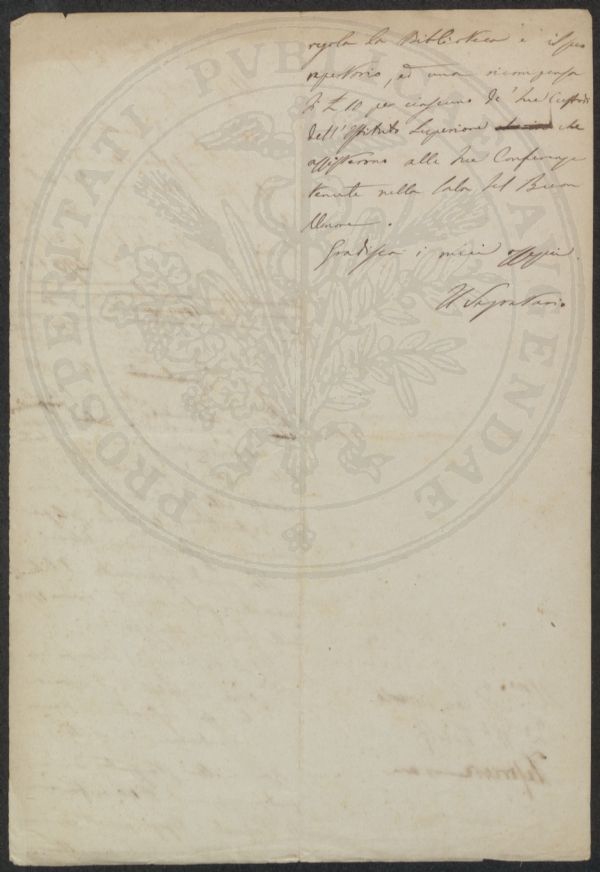 PROSPERITATI PUBLICAE AUGENDAE
regola la Biblioteca e il suo
repertorio, ed una ricompensa
di £ 10 per ciascuno de' tre Custodi
dell'Istituto Superiore che
assisterono alle tre Conferenze
tenute nella Sala del Buon
Umore.
Gradisca i miei ossequi.
Il Segretario